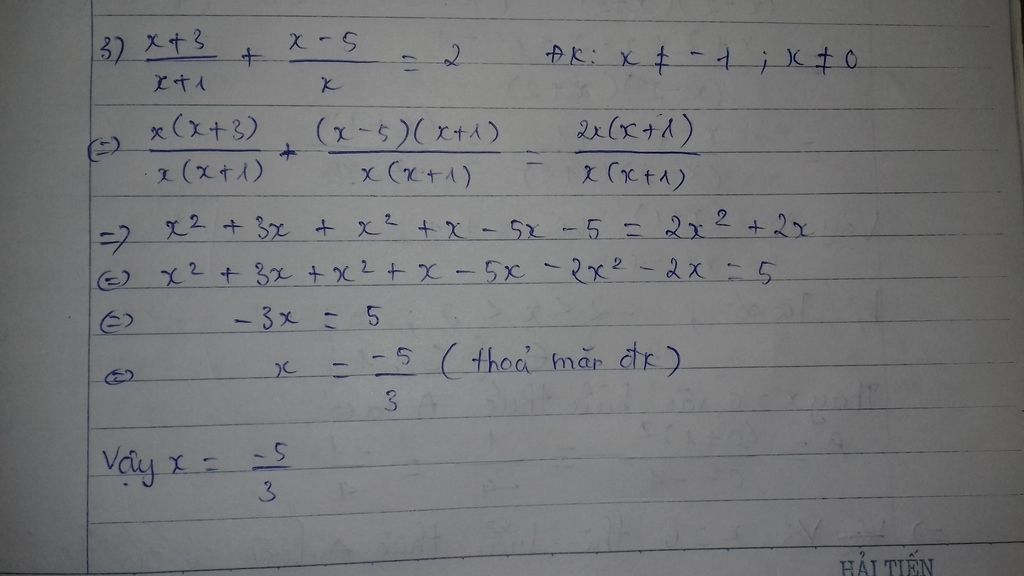 3) (x+3)/(x+1) + (x-5)/x = 2 ĐK: x ≠ -1 ; x ≠ 0
(=) x(x+3)/x(x+1) + (x-5)(x+1)/x(x+1) = 2x(x+1)/x(x+1)
=> x² + 3x + x² + x - 5x - 5 = 2x² + 2x
(=) x² + 3x + x² + x - 5x - 2x² - 2x = 5
(=) -3x = 5
(=) x = -5/3 (thoả mãn đk)
Vậy x = -5/3
HẢI TIẾN